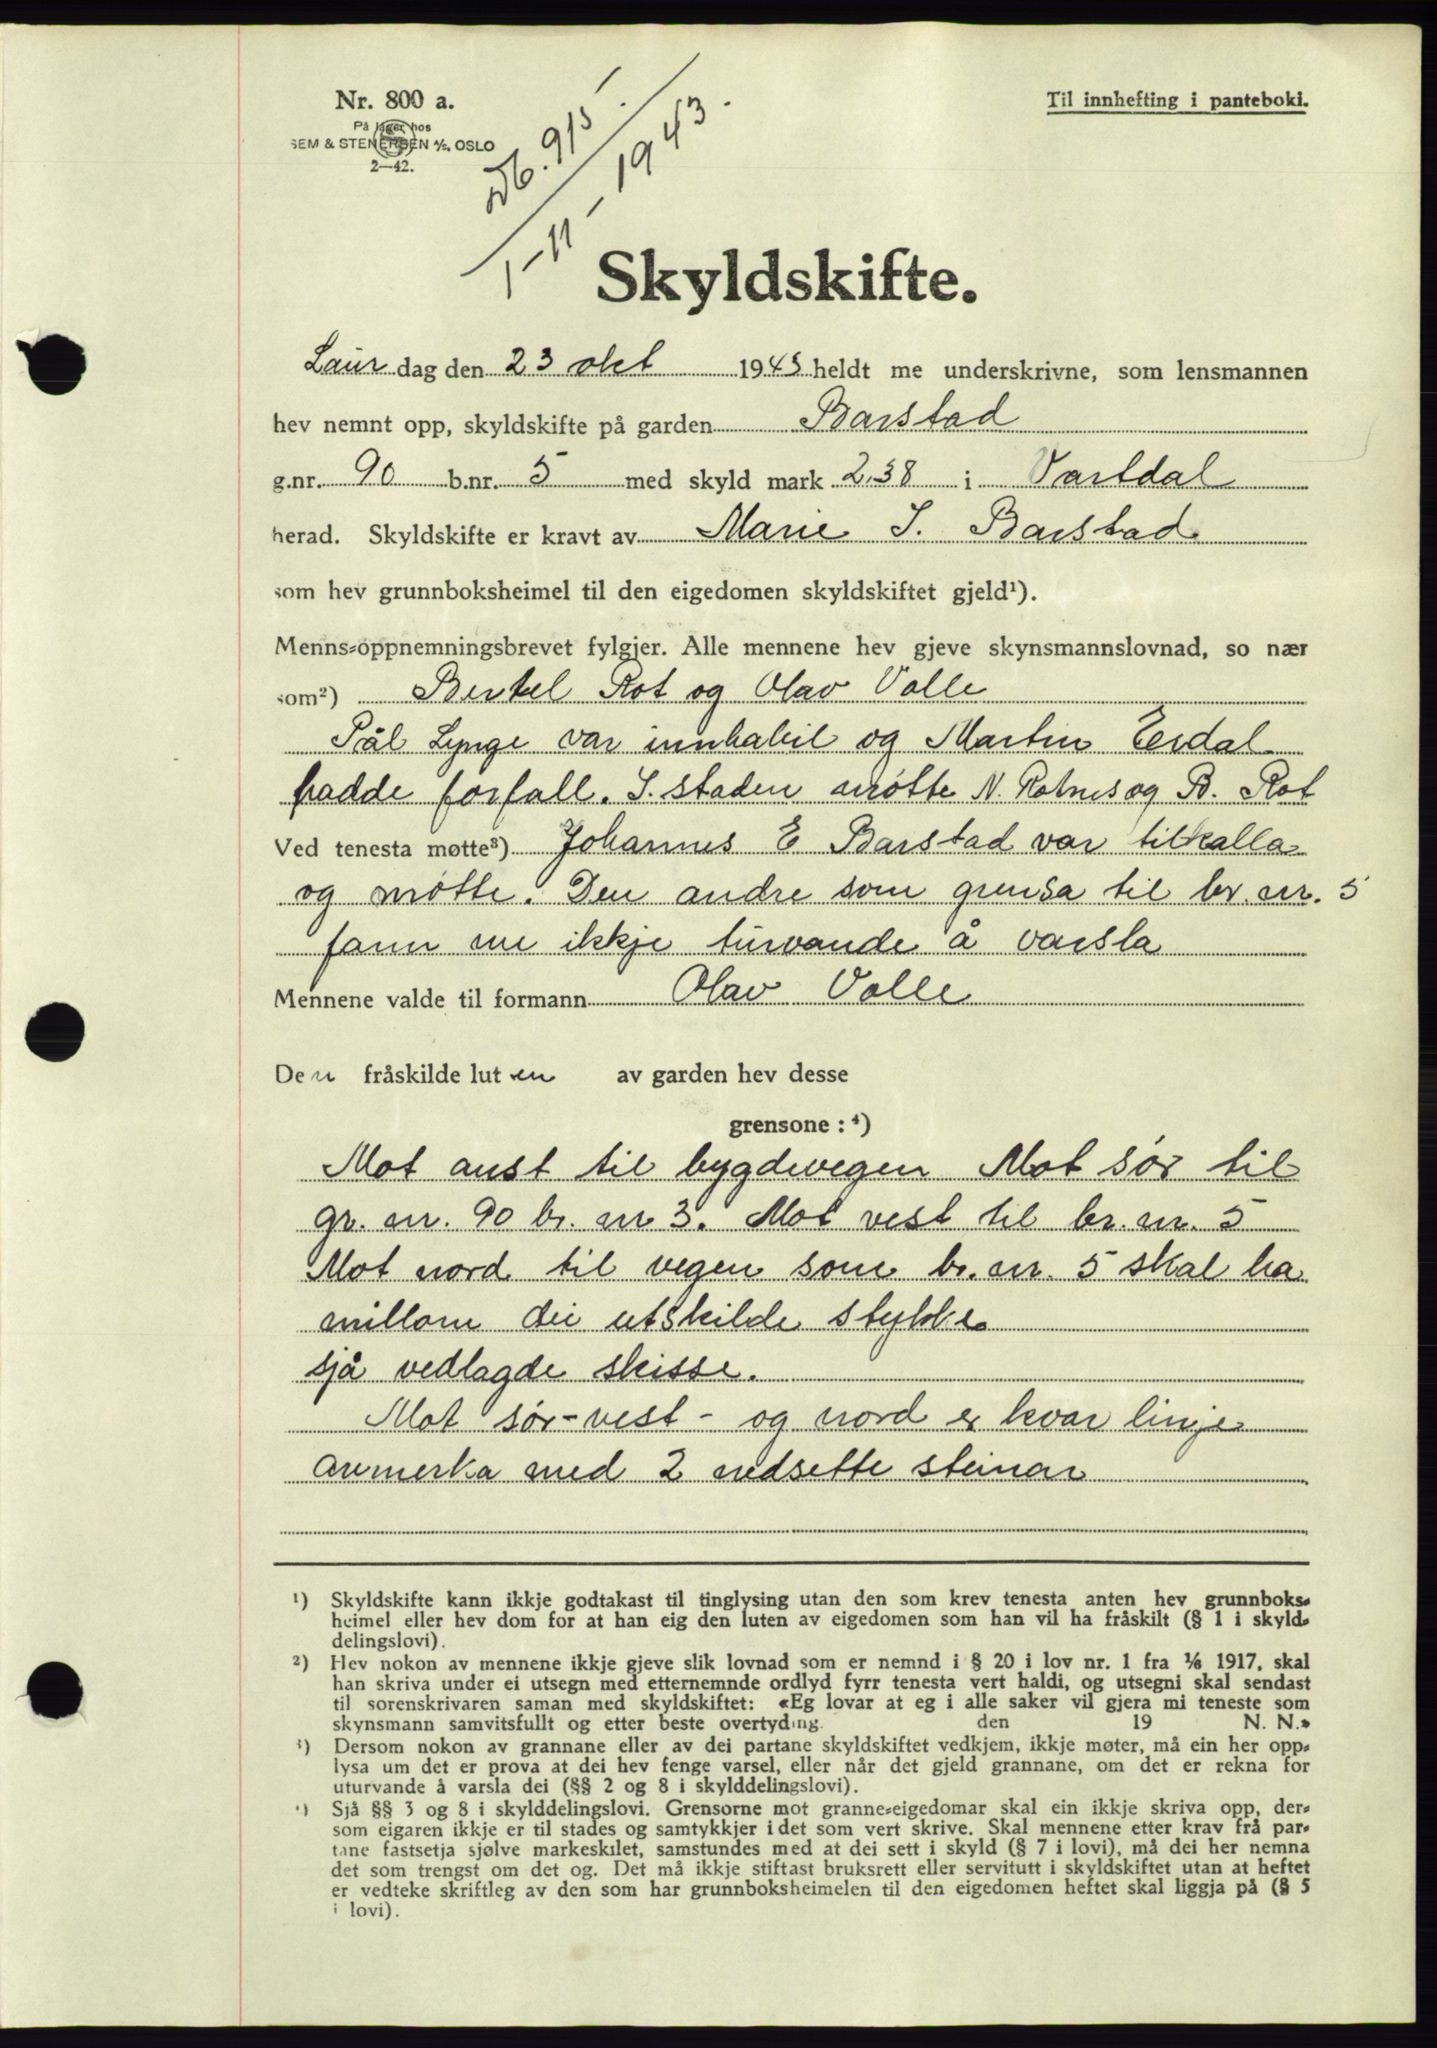 Nr. 800 a.
På lager hos
SEM & STENERSEN A/S, OSLO
2—42.
Til innhefting i panteboki.
Db. 915
1-11-1943.
Skyldskifte.
Laur dag den 23 okt 1943 heldt me underskrivne, som lensmannen
hev nemnt opp, skyldskifte på garden Barstad
g.nr. 90 b.nr. 5 med skyld mark 2,38 i Vartdal
herad. Skyldskifte er kravt av Marie I. Barstad
som hev grunnboksheimel til den eigedomen skyldskiftet gjeld¹).
Menns-oppnemningsbrevet fylgjer. Alle mennene hev gjeve skynsmannslovnad, so nær
som²) Bertel Rot og Olav Valle
Pål Lynge var innhabil og Martin Erdal
hadde forfall. I staden møtte N. Rotnes og B. Rot
Ved tenesta møtte³) Johannes E Barstad var tilkalla
og møtte. Den andre som grensa til br. nr. 5
fann me ikkje turvande å varsla
Mennene valde til formann Olav Valle
Den fråskilde luten av garden hev desse
grensone : ⁴)
Mot aust til bygdevegen Mot sør til
gr. nr. 90 br. nr 3. Mot vest til br. nr. 5
Mot nord til vegen som br. nr. 5 skal ha
millom dei utskilde stykke
sjå vedlagde skisse.
Mot sør-vest- og nord er kvar linje
avmerka med 2 nedsette steinar
¹) Skyldskifte kann ikkje godtakast til tinglysing utan den som krev tenesta anten hev grunnboks-
heimel eller hev dom for at han eig den luten av eigedomen som han vil ha fråskilt (§ 1 i skyld-
delingslovi).
²) Hev nokon av mennene ikkje gjeve slik lovnad som er nemnd i § 20 i lov nr. 1 fra 1/6 1917, skal
han skriva under ei utsegn med etternemnde ordlyd fyrr tenesta vert haldi, og utsegni skal sendast
til sorenskrivaren saman med skyldskiftet: «Eg lovar at eg i alle saker vil gjera mi teneste som
skynsmann samvitsfullt og etter beste overtyding. den 19 N. N.»
³) Dersom nokon av grannane eller av dei partane skyldskiftet vedkjem, ikkje møter, må ein her opp-
lysa um det er prova at dei hev fenge varsel, eller når det gjeld grannane, om det er rekna for
uturvande å varsla dei (§§ 2 og 8 i skylddelingslovi).
⁴) Sjå §§ 3 og 8 i skylddelingslovi. Grensorne mot granne-eigedomar skal ein ikkje skriva opp, der-
som eigaren ikkje er til stades og samtykkjer i det som vert skrive. Skal mennene etter krav frå par-
tane fastsetja sjølve markeskilet, samstundes med at dei sett i skyld (§ 7 i lovi), må dei her nemna
det som trengst om det og. Det må ikkje stiftast bruksrett eller servitutt i skyldskiftet utan at heftet
er vedteke skriftleg av den som har grunnboksheimelen til den eigedomen heftet skal liggja på (§ 5
i lovi).